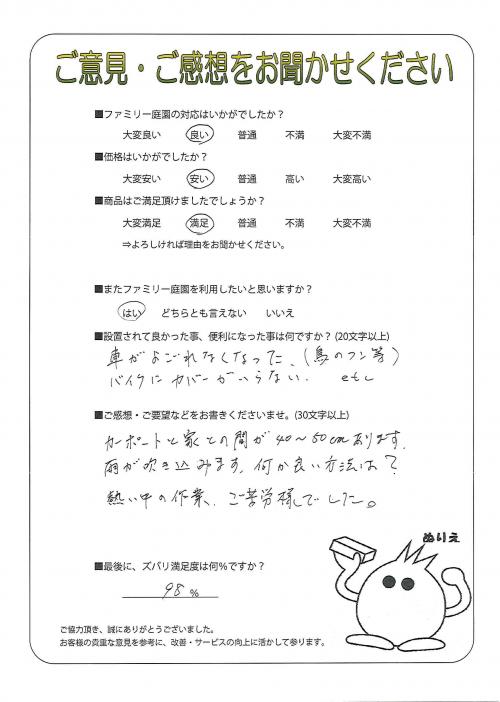 ご意見・ご感想をお聞かせください
■ファミリー庭園の対応はいかがでしたか？
大変良い 良い 普通 不満 大変不満
■価格はいかがでしたか？
大変安い 安い 普通 高い 大変高い
■商品はご満足頂けましたでしょうか？
大変満足 満足 普通 不満 大変不満
⇒よろしければ理由をお聞かせください。
■またファミリー庭園を利用したいと思いますか？
はい どちらとも言えない いいえ
■設置されて良かった事、便利になった事は何ですか？(20文字以上)
車がよごれなくなった、(鳥のフン等)
バイクにカバーがいらない. etc
■ご感想・ご要望などをお書きくださいませ。(30文字以上)
カーポートと家との間が40～50cmあります.
雨が吹き込みます, 何か良い方法は?
熱い中の作業、ご苦労様でした。
ぬりえ
■最後に、ズバリ満足度は何％ですか？
98 %
ご協力頂き、誠にありがとうございました。
お客様の貴重な意見を参考に、改善・サービスの向上に活かして参ります。